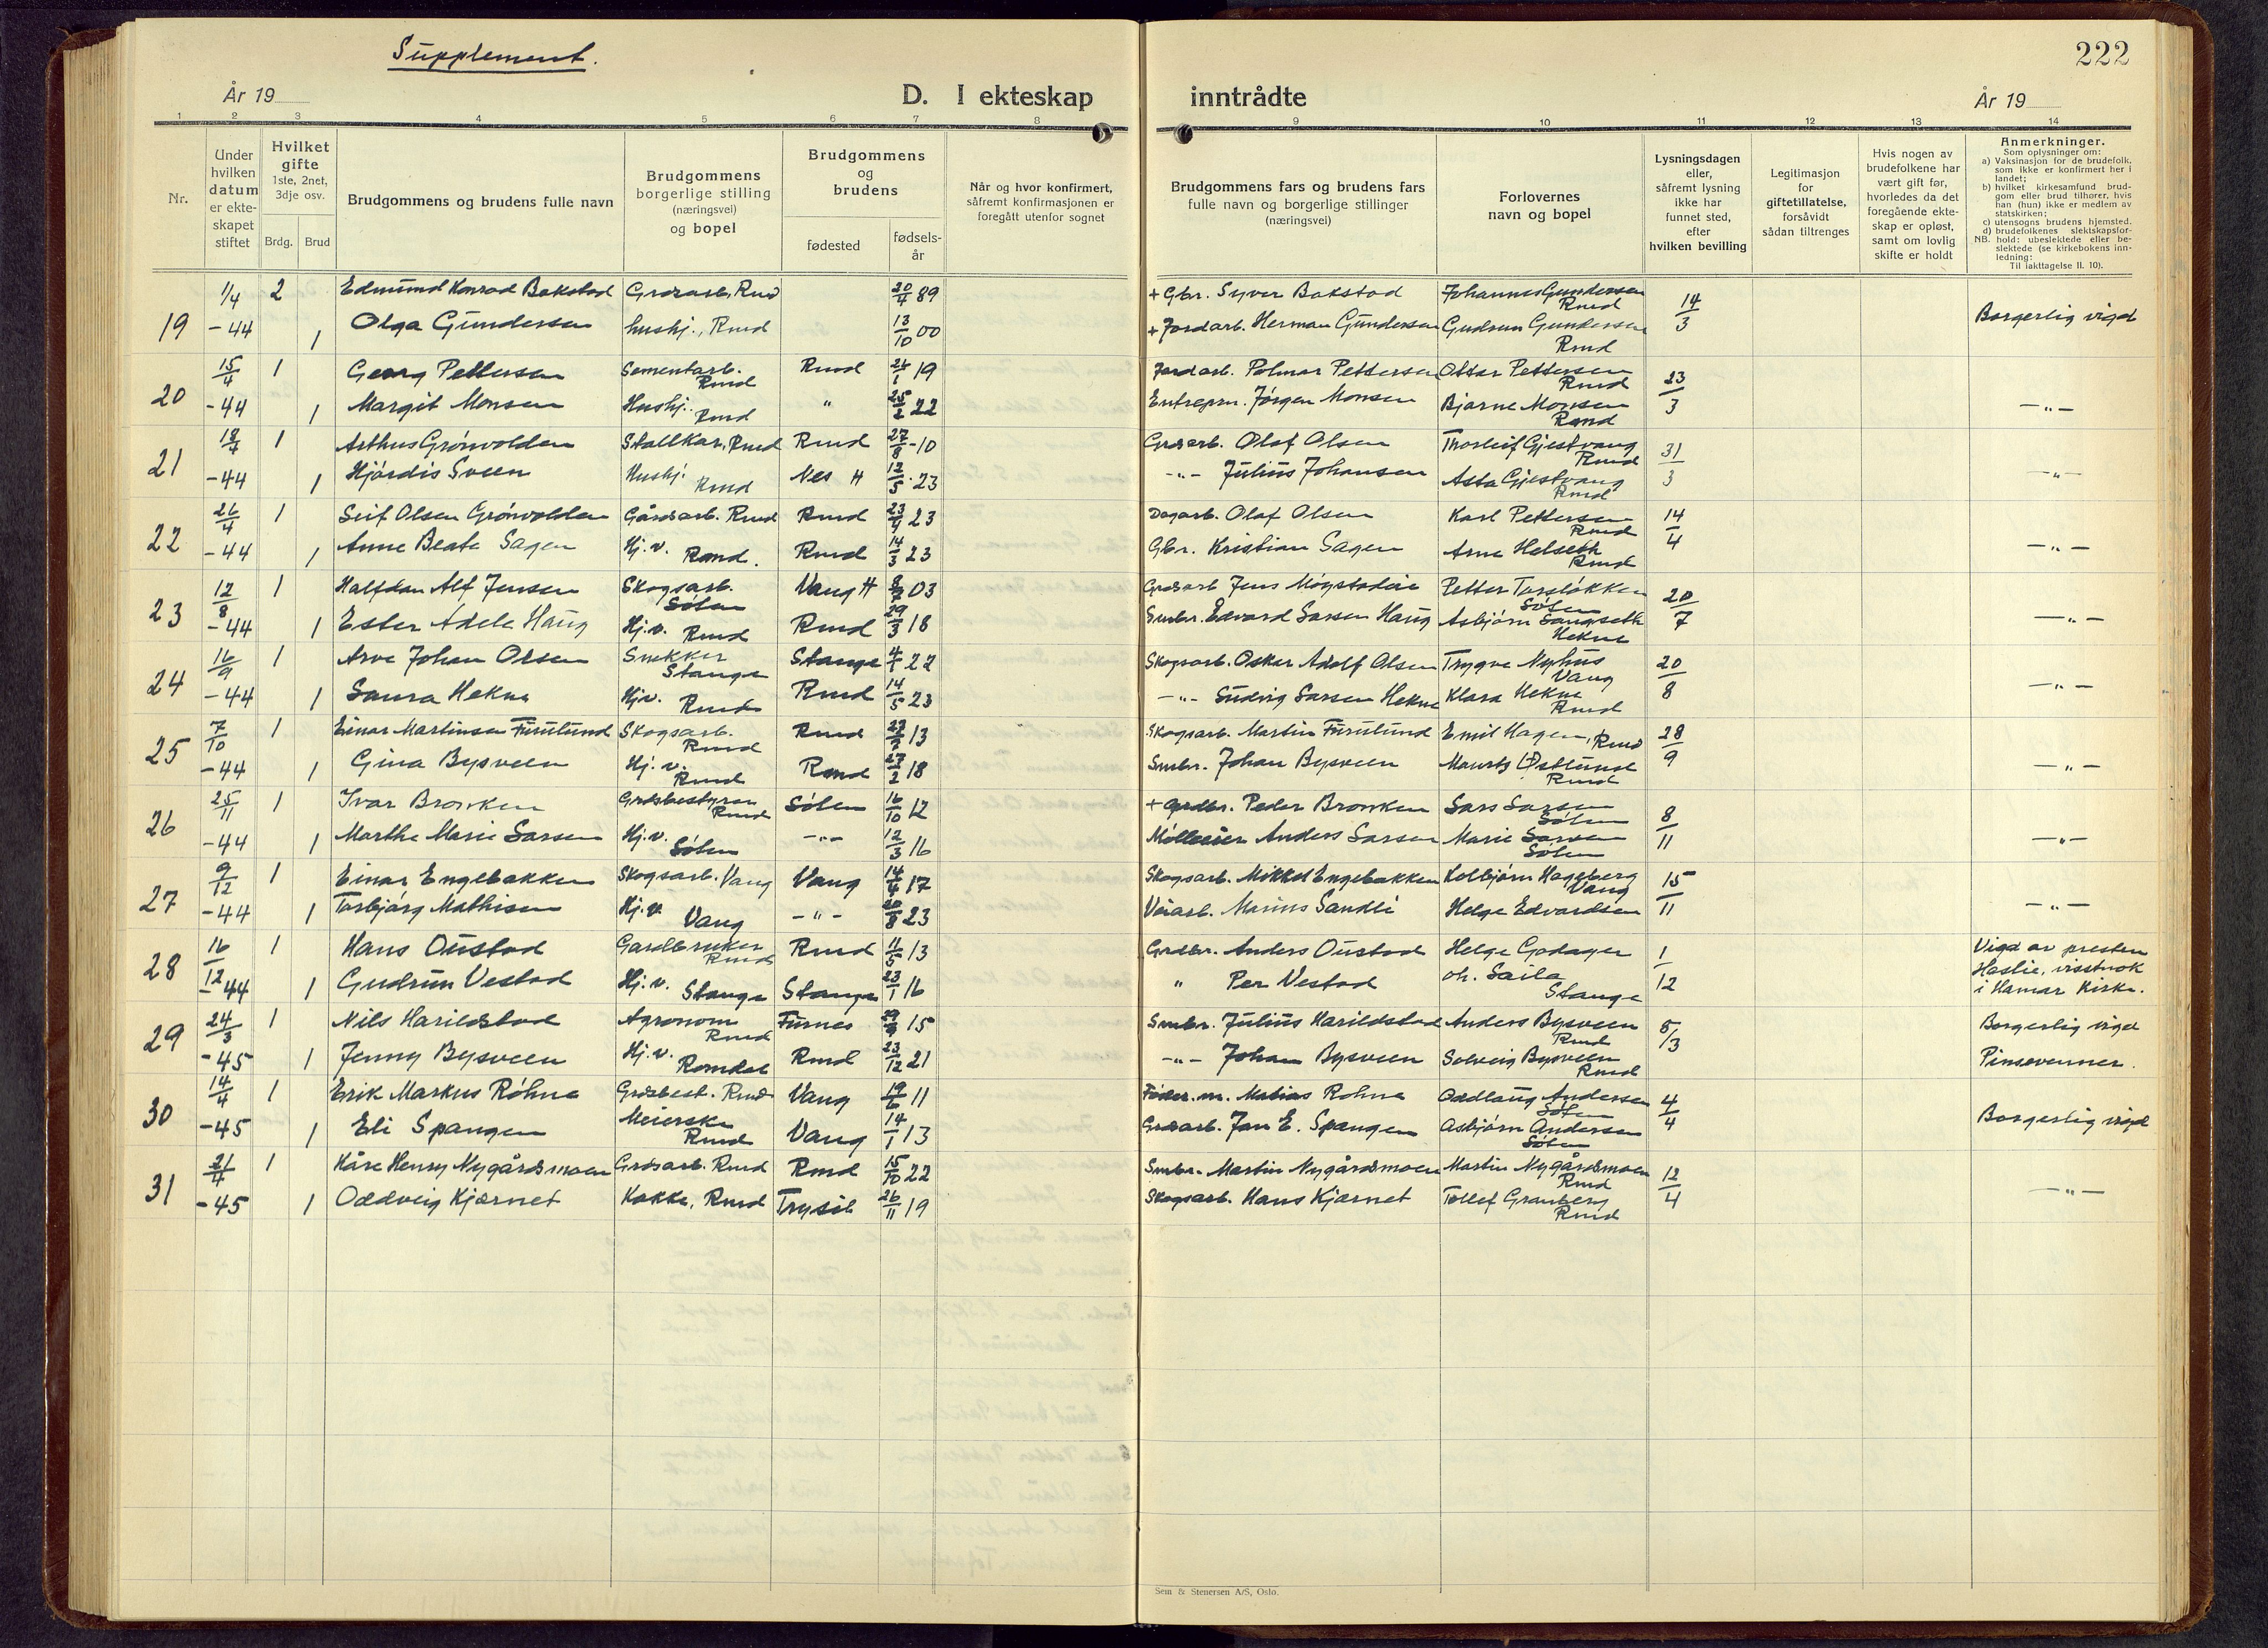 Supplement.
222
År 19
D. I ekteskap
inntrådte
År 19
1 2 3 4 5 6 7 8 9 10 11 12 13 14
Nr.
Under hvilken datum er ekteskapet stiftet
Hvilket gifte
1ste, 2net, 3dje osv.
Brdg. Brud
Brudgommens og brudens fulle navn
Brudgommens borgerlige stilling
(næringsvei)
og bopel
Brudgommens og brudens
fødested
fødsels-
år
Når og hvor konfirmert,
såfremt konfirmasjonen er
foregått utenfor sognet
Brudgommens fars og brudens fars
fulle navn og borgerlige stillinger
(næringsvei)
Forlovernes
navn og bopel
Lysningsdagen
eller,
såfremt lysning
ikke har
funnet sted,
efter
hvilken bevilling
Legitimasjon
for
giftetillatelse,
forsåvidt
sådan tiltrenges
Hvis nogen av
brudefolkene har
vært gift før,
hvorledes da det
foregående ekte-
skap er opløst,
samt om lovlig
skifte er holdt
Anmerkninger.
Som oplysninger om:
a) Vaksinasjon for de brudefolk,
som ikke er konfirmert her i
landet;
b) hvilket kirkesamfund brud-
gom eller brud tilhører, hvis
han (hun) ikke er medlem av
statskirken;
c) utensogns brudens hjemsted.
d) brudefolkenes slektskapsfor-
NB. hold: ubeslektede eller be-
slektede (se kirkebokens inn-
ledning:
Til iakttagelse II. 10).
19 1/4 -44 2 Edmund Konrad Bakstad Grdsarb. Rmd 20/4 89 + Gbr. Syver Bakstad Johannes Gundersen Rmd 14/3 Borgerlig vigd
1 Olga Gundersen hushj., Rmd 13/10 00 + Jordarb. Herman Gundersen Gudrun Gundersen Rmd
20 15/4 -44 1 Georg Pettersen Sementarb. Rmd Rmd 24/1 19 Jordarb. Polmar Pettersen Ottar Pettersen Rmd 23/3 — " —
1 Margit Monsen Hushj. Rmd " 25/2 22 Entrepr. Jørgen Monsen Bjarne Monsen Rmd
21 18/4 -44 1 Arthur Grønvolden Stallkar, Rmd Rmd 27/8 -10 Grdsarb. Olaf Olsen Thorleif Gjestvang Rmd 31/3 — " —
1 Hjørdis Sveen Hushj. Rmd Nes H 12/5 23 — " — Julius Johansen Asta Gjestvang Rmd
22 26/4 -44 1 Leif Olsen Grønvolden Gårdsarb. Rmd Rmd 23/4 23 Dagarb. Olaf Olsen Karl Pettersen Rmd 14/4 — " —
1 Anne Beate Sagen Hj.v. Romd. Rmd 14/3 23 Gbr. Kristian Sagen Arne Helseth Rmd
23 12/8 -44 1 Halfdan Alf Jensen Skogsarb. Løten Vang H 8/7 03 Grdsarb Jens Møystadeie Petter Torsløkken Løten 20/7 — " —
1 Ester Adele Haug Hj.v. Rmd Rmd 29/3 18 Smbr. Edvard Larsen Haug Asbjørn Langseth Hekne
24 16/9 -44 1 Arve Johan Olsen Snekker Stange Stange 4/1 22 Skogsarb. Oskar Adolf Olsen Trygve Nyhus Vang 20/8 — " —
1 Laura Hekne Hjv. Rmd Rmd 14/5 23 — " — Ludvig Larsen Hekne Klara Hekne Rmd
25 7/10 -44 1 Einar Martinsen Furulund Skogsarb. Rmd Rmd 13 Skogsarb. Martin Furulund Emil Hagen, Rmd 28/9 — " —
1 Gina Bysveen Hj.v. Rmd Romd 27/2 18 Smbr. Johan Bysveen Maurtz Østlund Rmd
26 25/11 -44 1 Ivar Bronken Grdsbestyrer Rmd Løten 16/10 12 + Grdbr. Peder Bronken Lars Larsen Løten 8/11 — " —
1 Marthe Marie Larsen Hj.v. Løten — " — 12/3 16 Mølleeier Anders Larsen Marie Larsen Løten
27 9/12 -44 1 Einar Engebakken Skogsarb. Vang Vang 14/4 17 Skogsarb. Mikkel Engebakken Kolbjørn Hageberg Vang 15/11 — " —
1 Torbjørg Mathisen Hj.v. Vang — " — 20/8 23 Veiarb. Marius Sandli Helge Edvardsen
28 16/12 -44 1 Hans Oustad Gardbruker Rmd Rmd 11/5 13 Grdbr. Anders Oustad Helge Godager 1/12 Vigd av presten
1 Gudrun Vestad Hj.v. Stange Stange 23/1 16 " Per Vestad Stange Haslie, visstnok
i Hamar Kirke.
29 24/3 -45 1 Nils Harildstad Agronom Rmd Furnes 29/9 15 Smbr. Julius Harildstad Anders Bysveen Rmd 5/3 Borgerlig vigd
1 Jenny Bysveen Hj.v. Romdal Rmd 23/12 21 — " — Johan Bysveen Solveig Bysveen Rmd Pinsevenner.
30 14/4 -45 1 Erik Markus Røhne Grdsbest. Rmd Vang 19/6 11 Føder.m. Matias Røhne Oddlaug Andersen Løten 4/4 Borgerlig vigd
1 Eli Spangen Meierske Rmd Vang 14/1 13 Grdsarb. Jan E. Spangen Asbjørn Andersen Løten
31 21/4 -45 1 Kåre Henry Nygårdsmoen Grdsarb. Rmd Rmd 15/10 22 Smbr. Martin Nygårdsmoen Martin Nygårdsmoen Rmd 12/4 — " —
1 Oddveig Kjærnet Kokke, Rmd Trysil 26/11 19 Skogsarb. Hans Kjærnet Tollef Granberg Rmd
Sem & Stenersen A/S, Oslo.